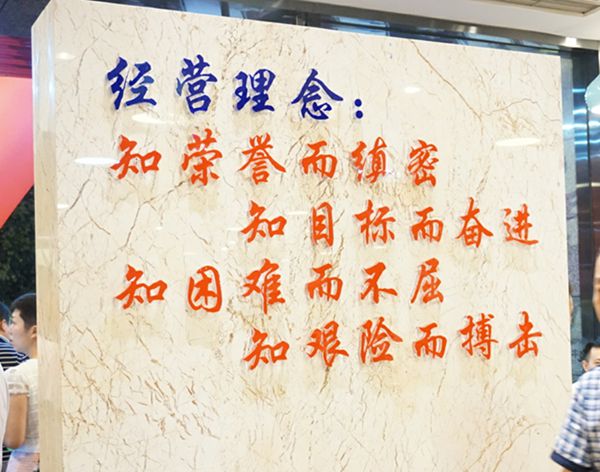 经营理念：
知荣誉而缜密
知目标而奋进
知困难而不屈
知艰险而搏击